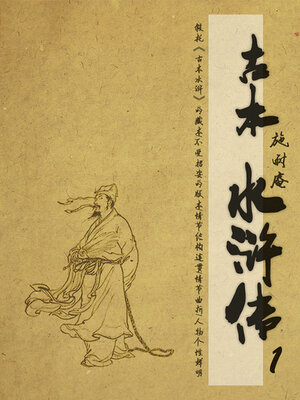 古本
水浒传 1
施耐庵
假托《古本水浒》的藏本不受招安的版本情节结构连贯情节曲折人物个性鲜明